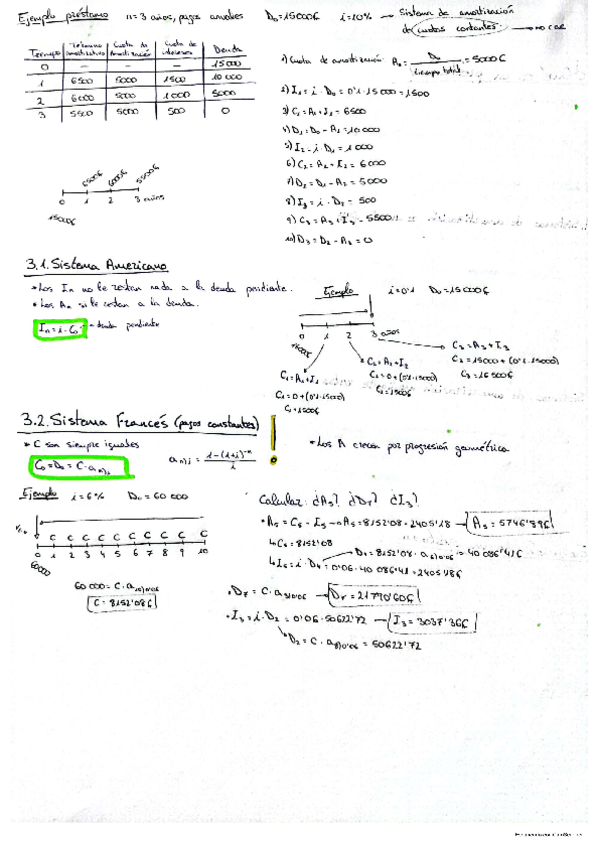 Ejemplo préstamo n=3 años, pagos anuales D₀=15000€ i=10% – Sistema de amortización
de cuotas constantes
Tiempo | Término amortizativo | Cuota de Amortización | Cuota de intereses | Deuda
0 | – | – | – | 15000
1 | 6500 | 5000 | 1500 | 10000
2 | 6000 | 5000 | 1000 | 5000
3 | 5500 | 5000 | 500 | 0
1) Cuota de amortización
= 5000€
2) I₁ = i · D₀ = 0'1 · 15000 = 1500
3) C₁ = A₁ + I₁ = 6500
4) D₁ = D₀ - A₁ = 10000
5) I₂ = i · D₁ = 1000
6) C₂ = A₂ + I₂ = 6000
7) D₂ = D₁ - A₂ = 5000
8) I₃ = i · D₂ = 500
9) C₃ = A₃ + I₃ = 5500
10) D₃ = D₂ - A₃ = 0
6500€ 6000€ 5500€
0 1 2 3 años
15000€
3.1. Sistema Americano
• Los In no le restan nada a la deuda pendiente.
• Los An si le restan a la deuda.
Iₙ = i · C₀ → deuda pendiente
Ejemplo i=0'1 D₀=15000€
0 1 2 3 años
15000€
C₁ = A₁ + I₁
C₁ = 0 + (0'1 · 15000)
C₁ = 1500€
C₂ = A₂ + I₂
C₂ = 0 + (0'1 · 15000)
C₂ = 1500€
C₃ = A₃ + I₃
C₃ = 15000 + (0'1 · 15000)
C₃ = 16500€
3.2. Sistema Francés (pagos constantes)
• C son siempre iguales
C₀ = D₀ = C · aₙ┐ᵢ
aₙ┐ᵢ = (1-(1+i)⁻ⁿ)/i
• Los A crecen por progresión geométrica
Ejemplo i=6% D₀=60 000
C C C C C C C C C C
0 1 2 3 4 5 6 7 8 9 10
60000
60 000 = C · a₁₀┐₀'₀₆
C = 8152'08€
Calcular: ¿A₅? ¿D₇? ¿I₃?
• A₅ = C₅ - I₅ → A₅ = 8152'08 - 2405'18 → A₅ = 5746'89€
↳ C₅ = 8152'08
↳ I₅ = i · D₄ = 0'06 · 40 086'41 = 2405'18€
= 40 086'41€
• D₇ = C · a₃┐₀'₀₆ → D₇ = 21790'60€
• I₃ = i · D₂ = 0'06 · 50622'72 → I₃ = 3037'36€
D₂ = C · a₈┐₀'₀₆ = 50622'72